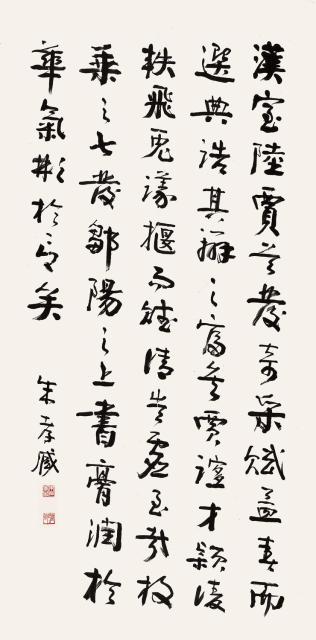 漢室陸賈首發奇采賦孟春而
選典誥其辯之富矣賈誼才穎陵
軼飛兔議愜而賦清豈虛至哉枚
乘之七發鄒陽之上書膏潤於
筆氣形於言矣
朱孝臧